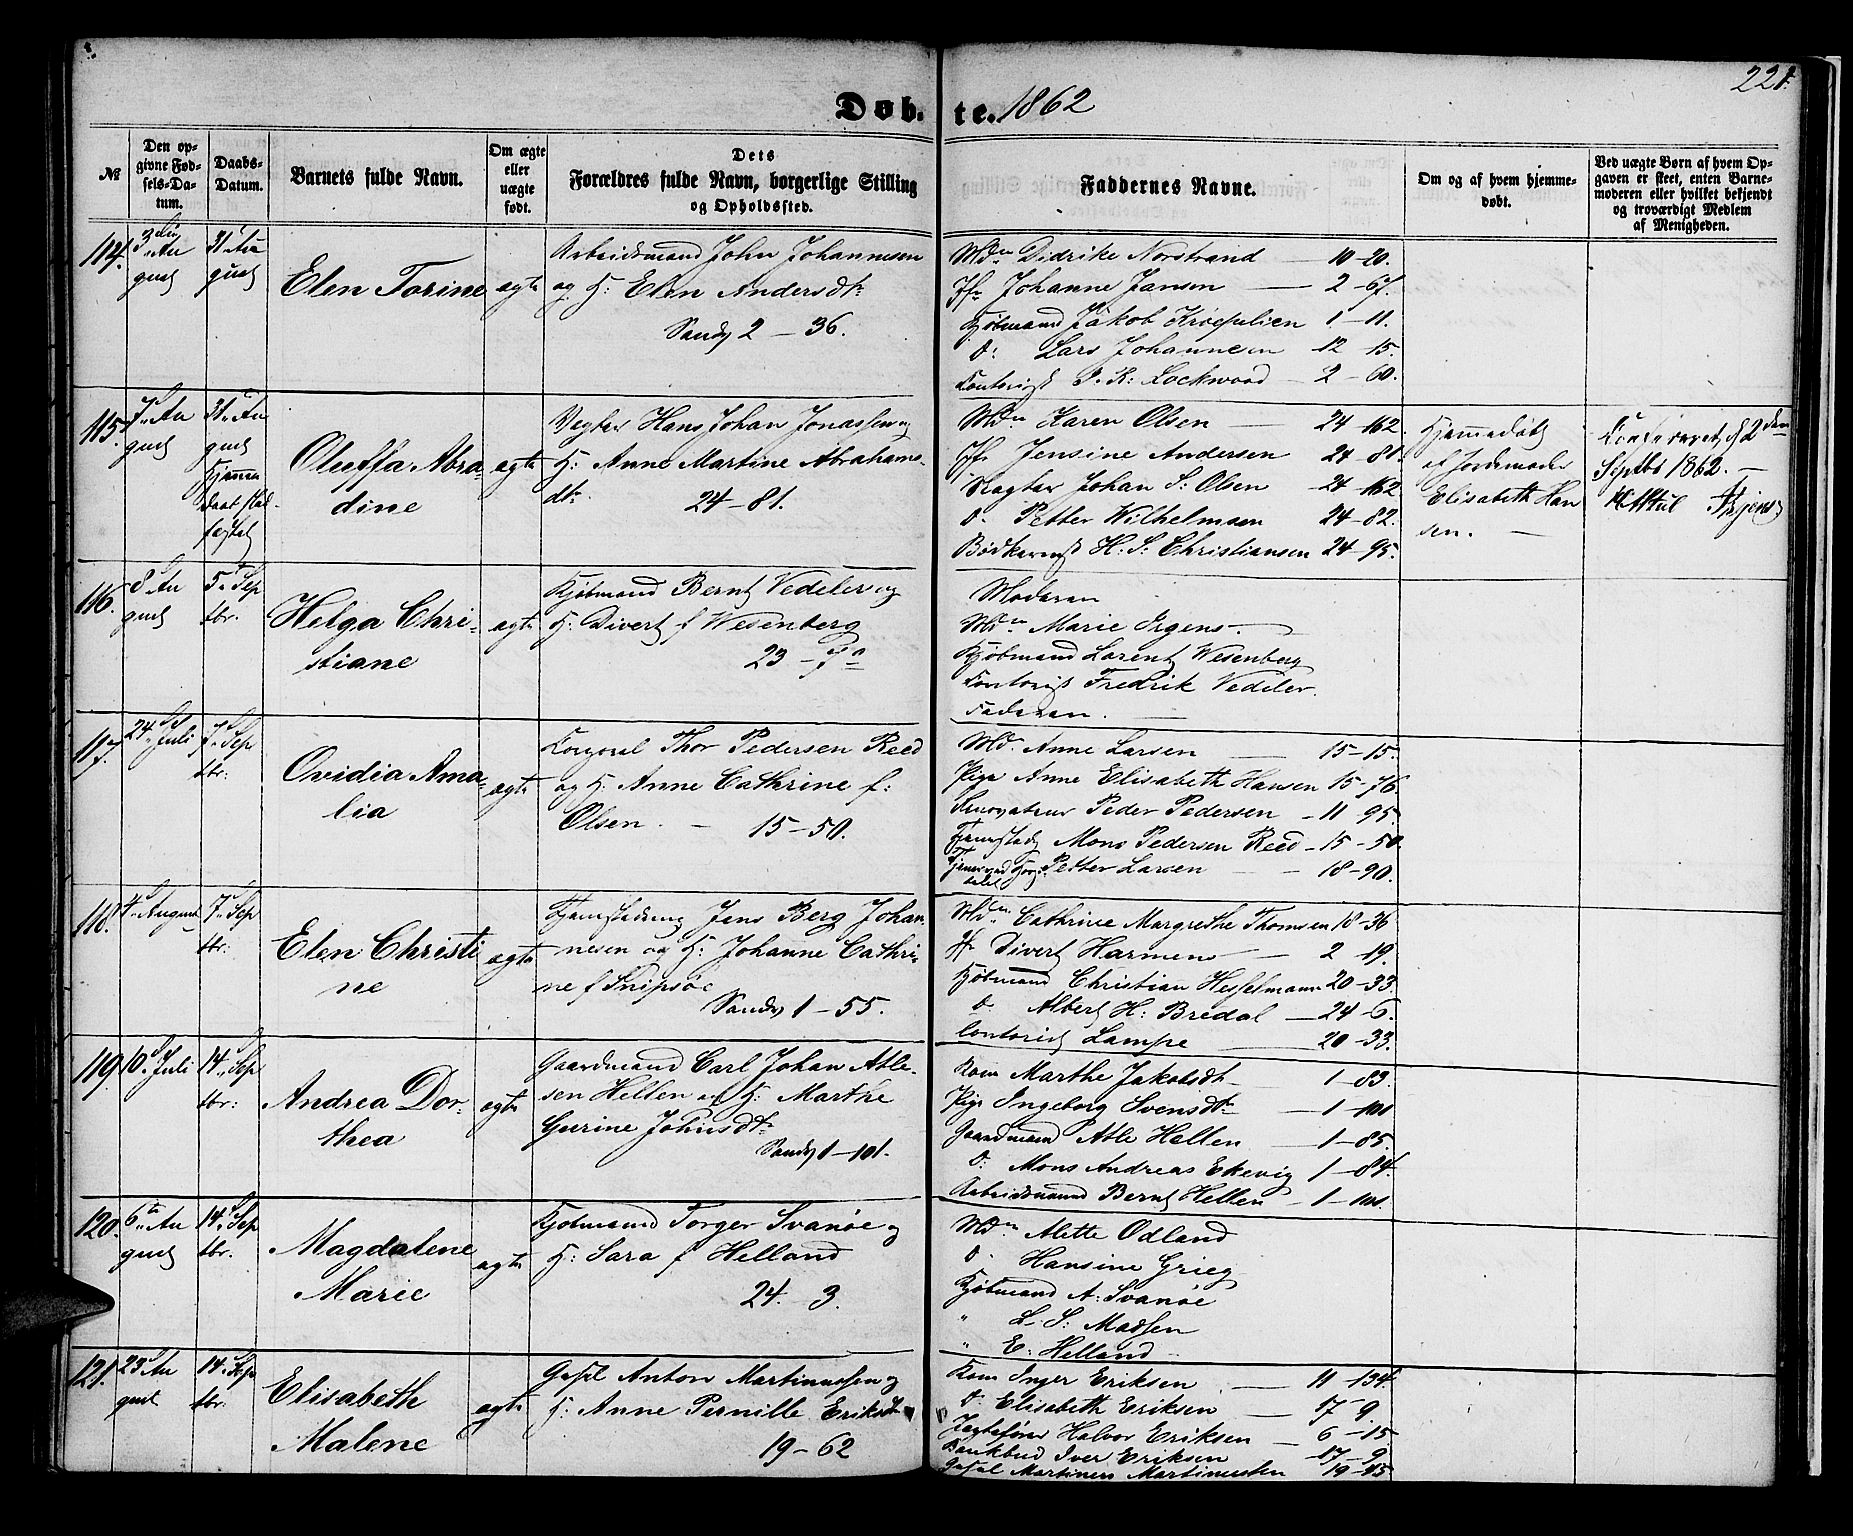 221.
Døbte. 1862
№
Den opgivne Fødsels-Datum.
Daabs-Datum.
Barnets fulde Navn.
Om ægte eller uægte født.
Dets Forældres fulde Navn, borgerlige Stilling og Opholdssted.
Faddernes Navne.
Om og af hvem hjemmedøbt.
Ved uægte Børn af hvem Opgaven er skeet, enten Barnemoderen eller hvilket bekjendt og troværdigt Medlem af Menigheden.
114.
3die August
31 August
Elen Torine
ægte
Arbeidsmand John Johannesen
og H: Elen Andersdtr
Sandv 2 – 36.
Mdm Didrike Norstrand — 10–20.
Jfr Johanne Jansen — 2–67.
Kjøbmand Jakob Krøepelien 1–11.
do: Lars Johannesen — 12–15.
Kontorist J. K: Lockwood — 2–60.
115.
7 August
31 August
Hjemmedaab stadfæstet
Oluffa Abra-
dine
ægte
Vegter Hans Johan Jonassen og
H: Anne Martine Abrahams-
dtr. 24–81.
Mdm Karen Olsen — 24–162.
Jfr Jensine Andersen 24–81.
Vægter Johan S: Olsen 24–162
do. Petter Wilhelmsen 24–82.
Bødkersv H. S: Christiansen 24–95.
Hjemmedøbt
af Jordemoder
Elisabeth Han
sen. —
2den
Septbr 1862. —
116.
8 August
5 Sep
tbr.
Helga Chri-
stiane
ægte
Kjøbmand Bernt Vedeler og
H: Divert f Wesenberg
23 – 7a
Moderen
Mdm Marie Irgens. —
Kjøbmand Larentz Wesenberg
Kontorist Fredrik Vedeler.
Faderen. —
117.
24 Juli
7 Sep
tbr:
Ovidia Ama-
lia
ægte
Korporal Thor Pedersen Reed
og H: Anne Cathrine f:
Olsen. – 15–50.
Md. Anne Larsen — 15–15.
Pige Anne Elisabeth Hansen 15–76
Renovateur Peder Pedersen – 11–95
Mons Pedersen Reed – 15–50.
Petter Larsen — 18–90.
118.
4 August
7 Sep
tbr:
Elen Christi
ne
ægte
Jens Berg Johan
nesen og H: Johanne Cathri-
ne f Snipsøe
Sandv 1 – 55.
Mdm Cathrine Margrethe Thomsen 18–36
Jfr Divert Harmens — 2–19.
Kjøbmand Christian Hesselmann 20–33.
do Albert H: Bredal — 24–6.
Contorist Lampe — 20–33.
119.
10 Juli
14 Sep
tbr:
Andrea Dor-
thea
ægte
Gaardmand Carl Johan Atle-
sen Hellen og H: Marthe
Gurine Johnsdtr
Sandv 1–101.
Kone Marthe Jakobsdtr — 1–83.
Pige Ingeborg Svensdtr — 1–101
Gaardmand Atle Hellen — 1–85.
do: Mons Andreas Ekevig 1–84.
Arbeidsmand Bernt Hellen – 1–101.
120.
6te August
14 Sep
tbr.
Magdalene
Marie
ægte
Kjøbmand Torger Svanøe og
H: Sara f Helland
24. – 3.
Mdm. Alette Odland
do. Hansine Grieg
Kjøbmand A: Svanøe
" L. S: Madsen
" E: Helland
121.
23 August
14 Sep
tbr:
Elisabeth
Malene
ægte
Anton Martinussen og
H: Anne Pernille Eriksdtr
19–62
Kone Inger Eriksen — 11–134.
do Elisabeth Eriksen — 17–9.
Jagtefører Halvor Eriksen — 6–15
Bankbud Iver Eriksen — 17–9.
Martinus Martinussen 19–45